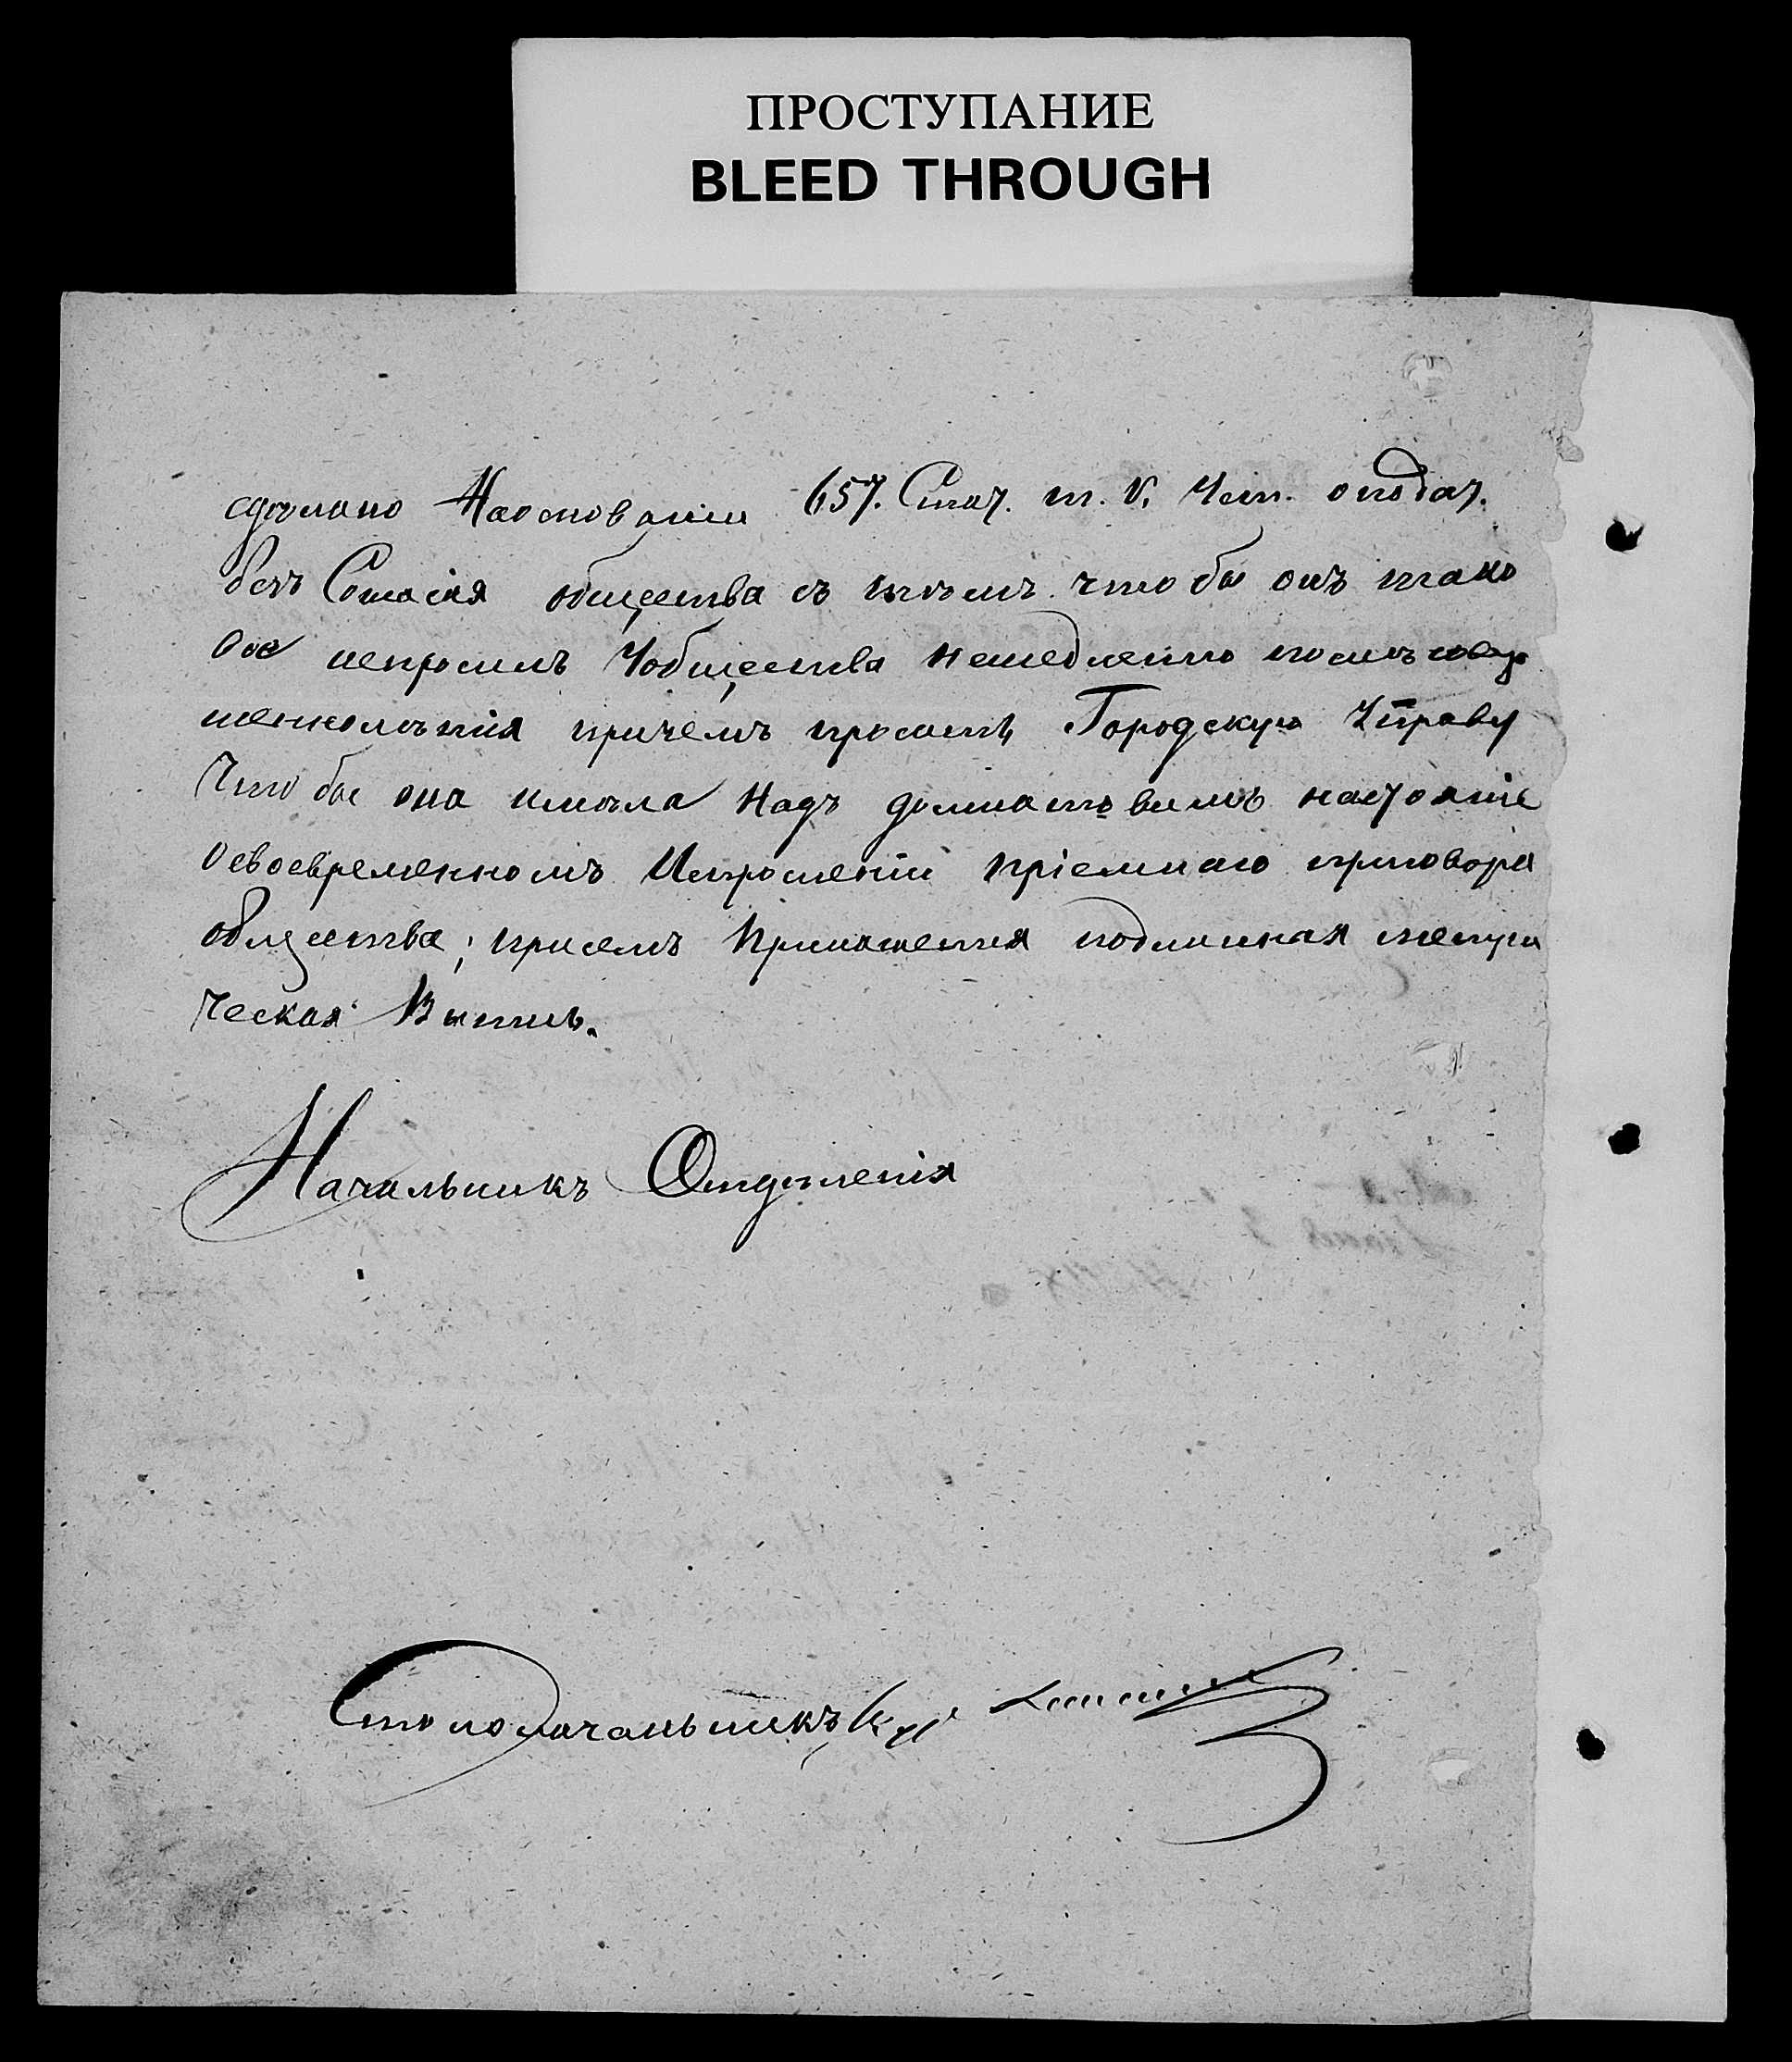 ПРОСТУПАНИЕ
BLEED THROUGH
сдѣлано На основаніи 657. Стат. т. V. Уст. о подат.
безъ Согласія общества съ тѣмъ что бы онъ тако
вое испросилъ У общества немедленно послѣ совер
шеннолѣтія причемъ проситъ Городскую Управу
Что бы она имѣла надъ настояніе
О своевременномъ Испрошеніи пріемнаго приговора
общества; при семъ Прилагается подлинная метри
ческая Выпись.
Начальникъ Отдѣленія
Столоначальникъ